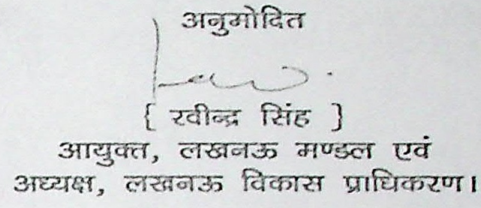 अनुमोदित
{ रवीन्द्र सिंह }
आयुक्त, लखनऊ मण्डल एवं
अध्यक्ष, लखनऊ विकास प्राधिकरण।